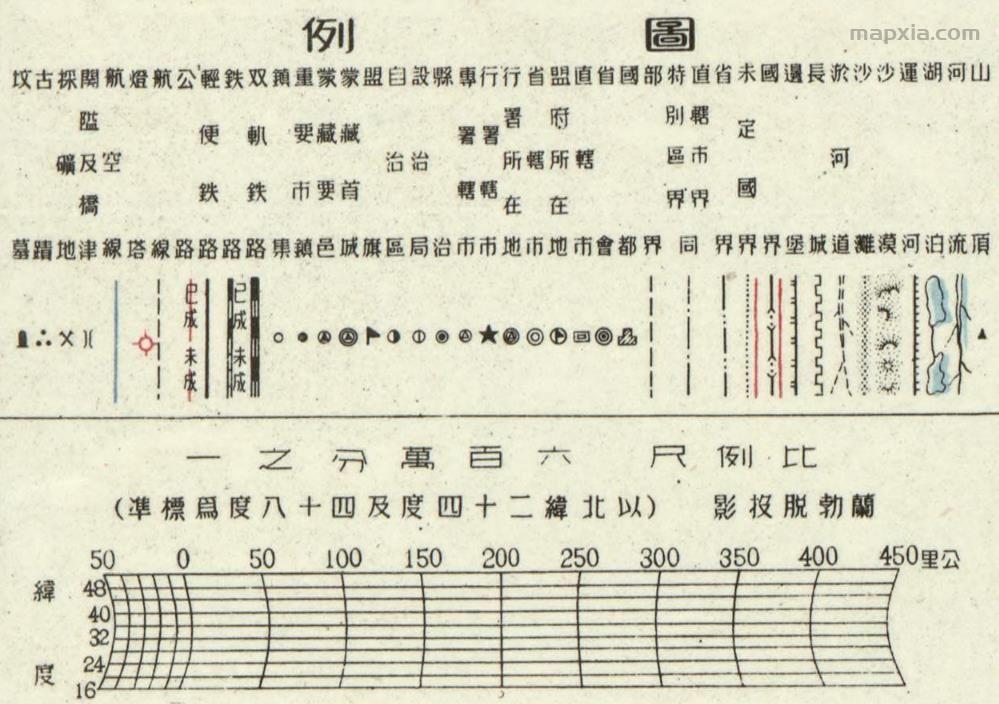 mapxia.com
圖例
山頂
河流
湖泊
運河
沙漠
沙灘
淤河道
長城
邊堡
國界
未定國界
省界
直轄市界
特別區界
同
部界
國都
省會
直轄市
盟府所在地
省轄市
行署所在地
行署轄市
專署轄市
縣治
設治局
自治區
盟旗
蒙藏首城
蒙藏要邑
重要市鎮
鎮集
双軌鉄路
鉄路
已成 未成
輕便鉄路
公路
已成 未成
航線
燈塔
航空線
關隘及橋津
採礦地
古蹟
坟墓
比例尺 六百萬分之一
蘭勃脱投影 (以北緯二十四度及四十八度爲標準)
50 0 50 100 150 200 250 300 350 400 450 公里
緯度
48
40
32
24
16